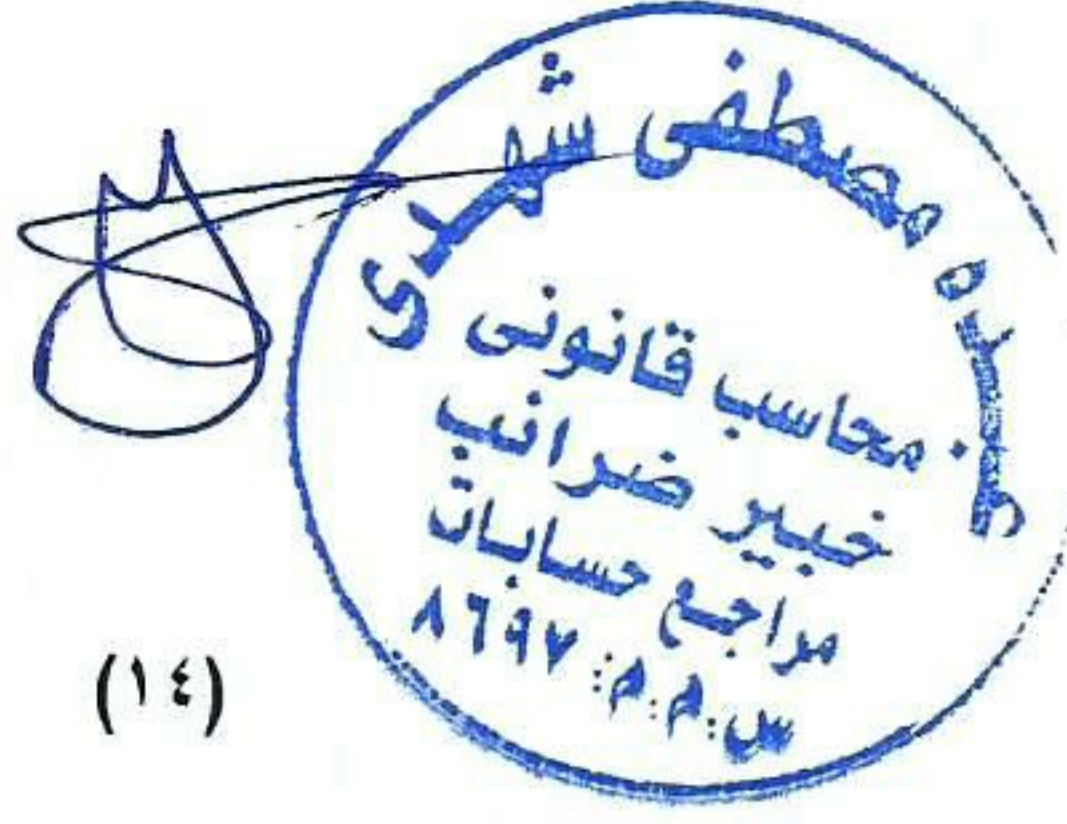 عبده مصطفى شهدى
محاسب قانونى
خبير ضرائب
مراجع حسابات
س.م.م: ٨٦٩٧
(١٤)